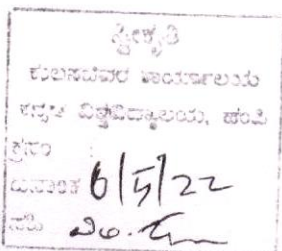 ಸ್ವೀಕೃತಿ
ಕುಲಸಚಿವರ ಕಾರ್ಯಾಲಯ
ಕನ್ನಡ ವಿಶ್ವವಿದ್ಯಾಲಯ, ಹಂಪಿ
ಕ್ರಸಂ
ದಿನಾಂಕ 6/5/22
ಸಹಿ